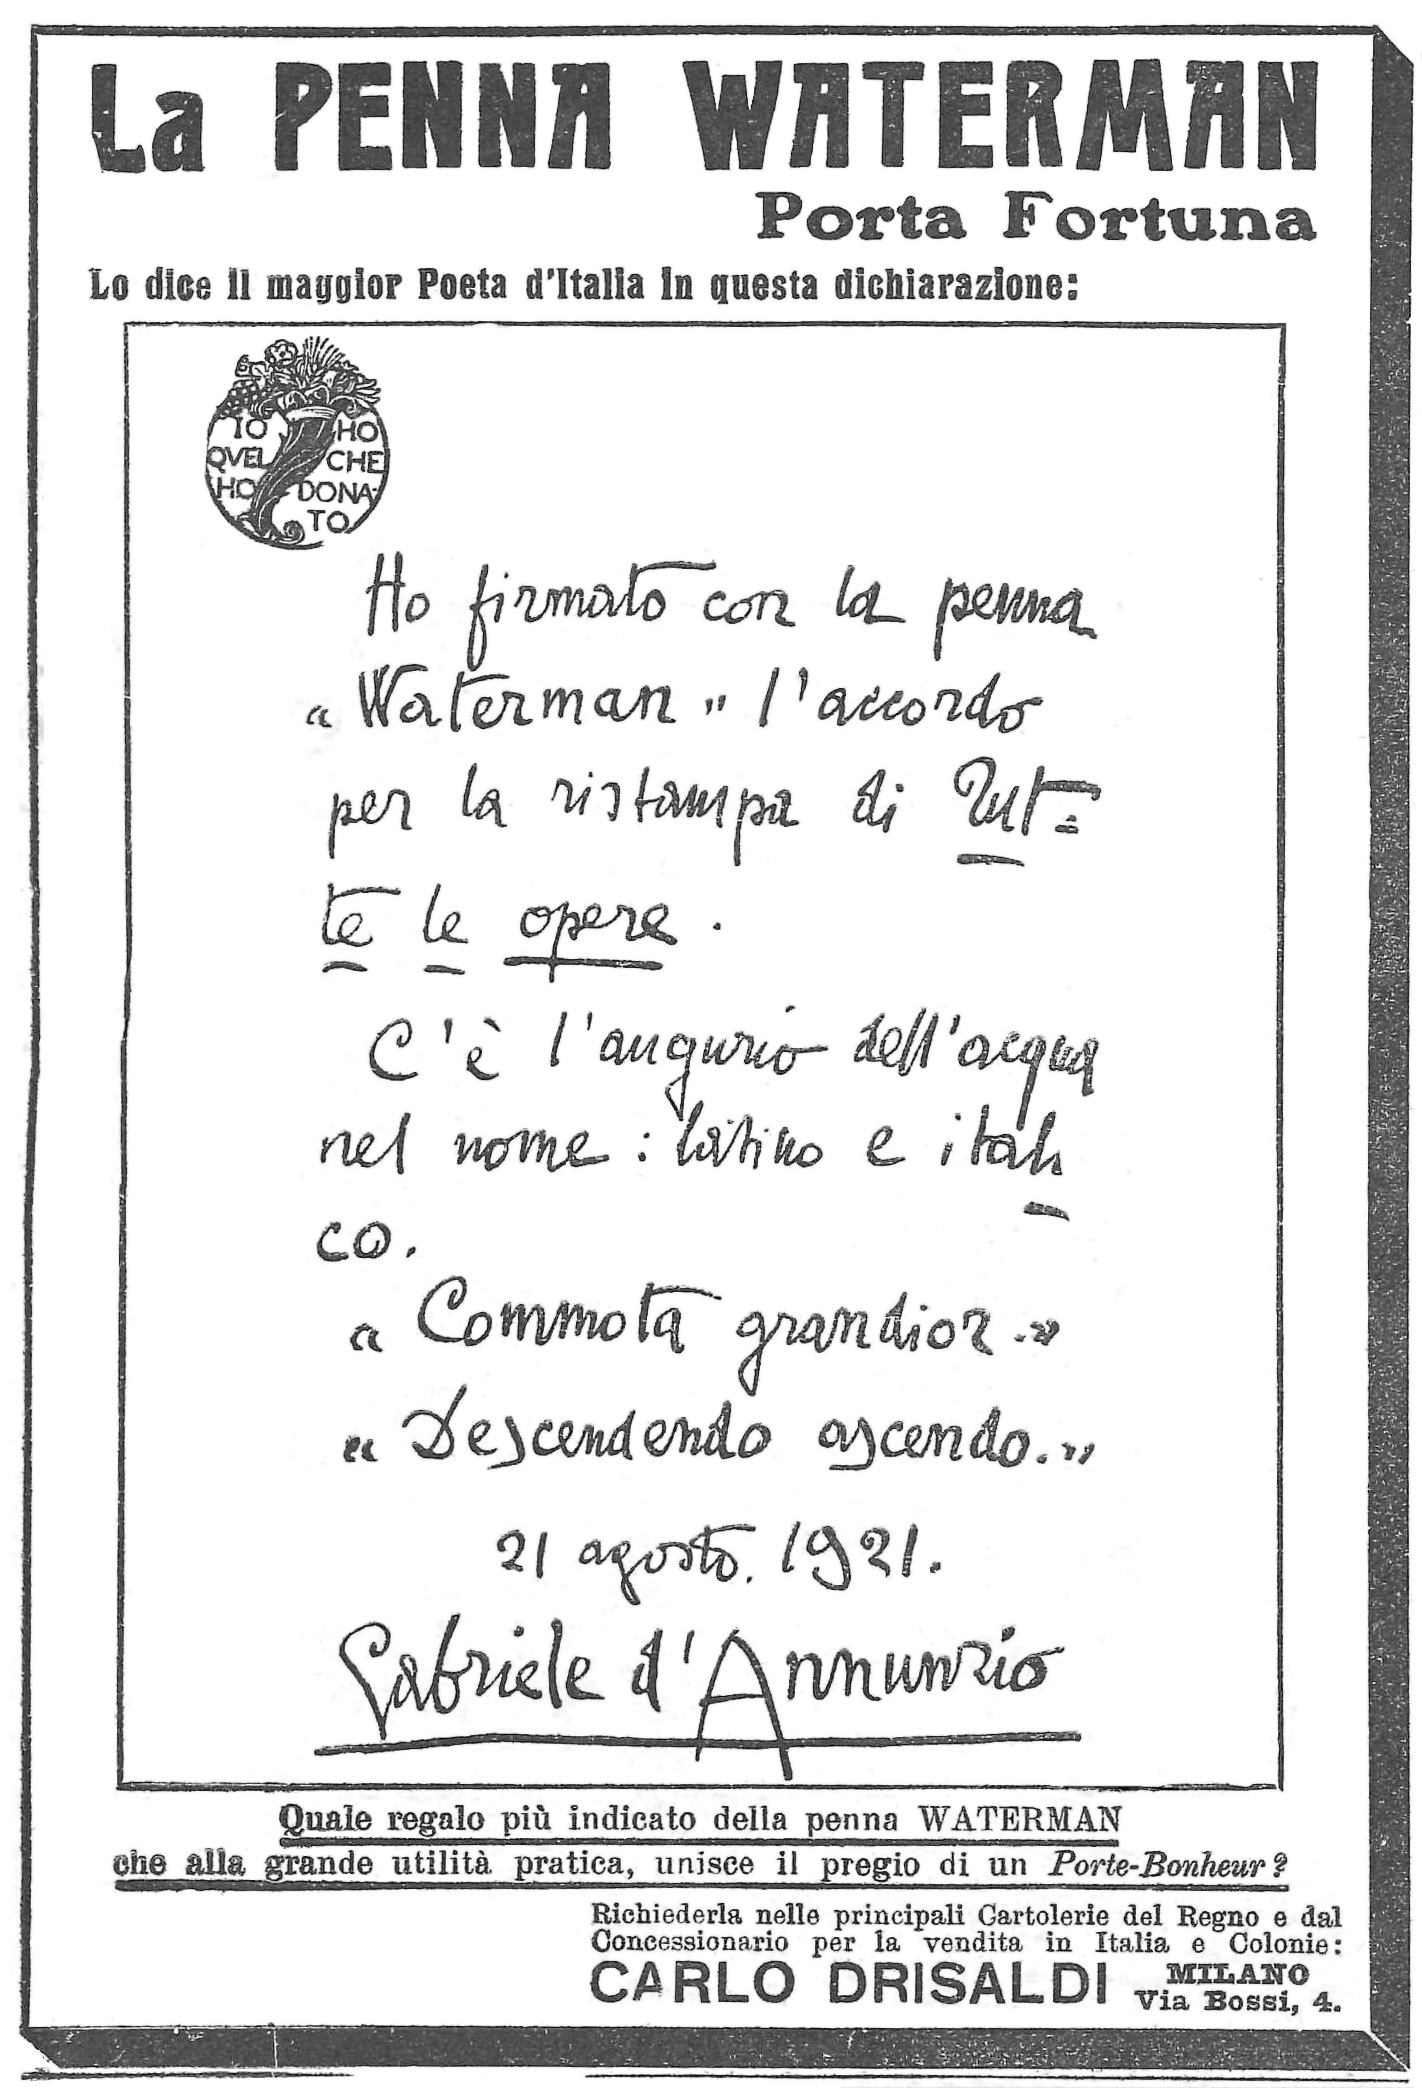 La PENNA WATERMAN
Porta Fortuna
Lo dice il maggior Poeta d'Italia in questa dichiarazione:
IO HO
QVEL CHE
HO DONA-
TO
Ho firmato con la penna
“Waterman” l'accordo
per la ristampa di Tut=
te le opere.
C'è l'augurio dell'acqua
nel nome: latino e itali
co.
“Commota grandior.”
“Descendendo ascendo.”
21 agosto. 1921.
Gabriele d'Annunzio
Quale regalo più indicato della penna WATERMAN
che alla grande utilità pratica, unisce il pregio di un Porte-Bonheur?
Richiederla nelle principali Cartolerie del Regno e dal
Concessionario per la vendita in Italia e Colonie:
CARLO DRISALDI MILANO
Via Bossi, 4.